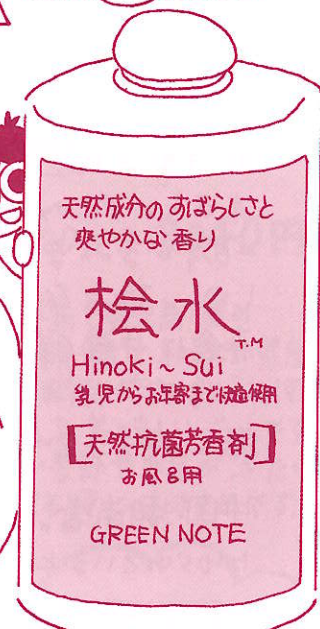 天然成分のすばらしさと
爽やかな香り
桧水
T.M
Hinoki~Sui
乳児からお年寄まで快適使用
[天然抗菌芳香剤]
お風呂用
GREEN NOTE